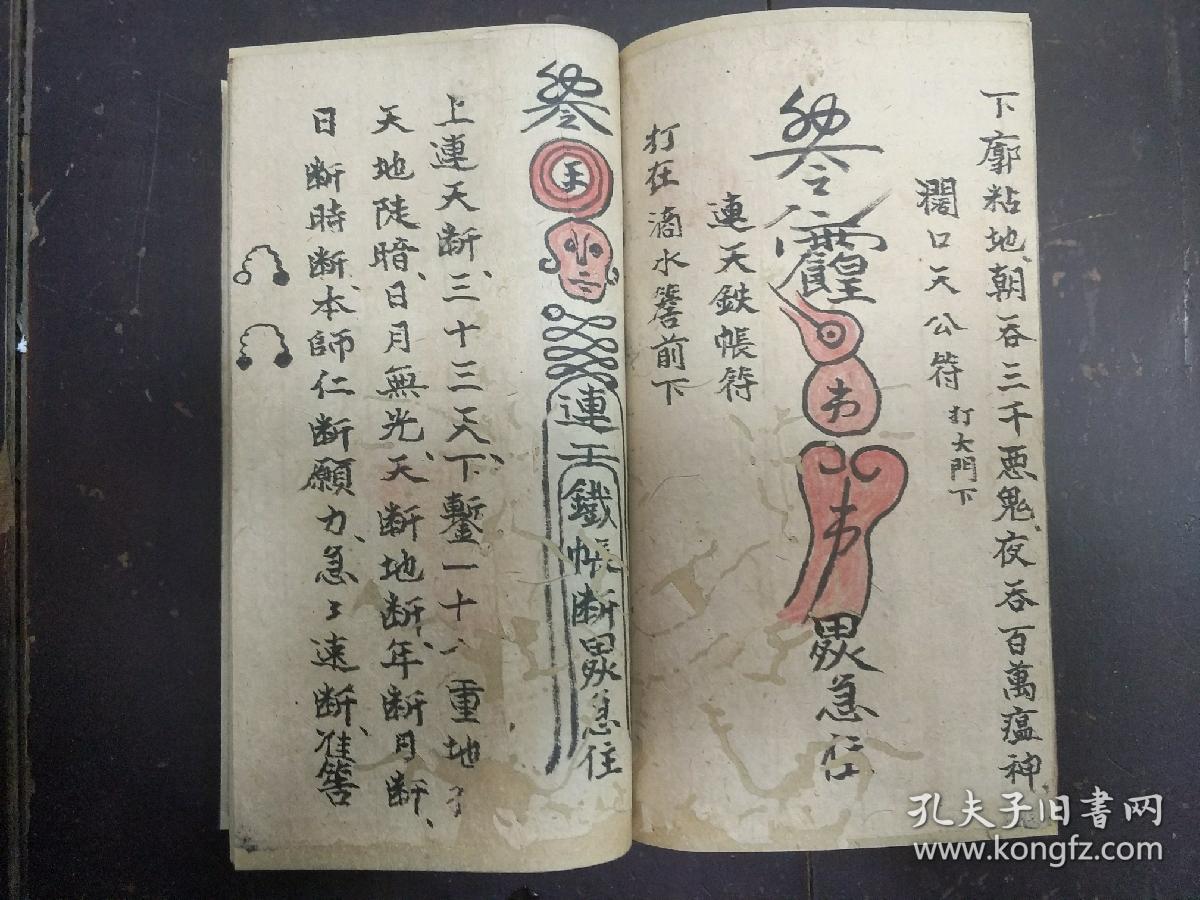 下廓粘地、朝吞三千悪鬼、夜吞百萬瘟神
濶口天公符 打大門下
令
急
連天鉄帳符
打在滴水簷前下
令
王
連天鐵帳断 急住
上連天断、三十三天、下鏨一十 重地
天地陡暗、日月無光、天断地断、年断月断、
日断時断、本師仁断願力、急〻速断、准
孔夫子旧书网
www.kongfz.com